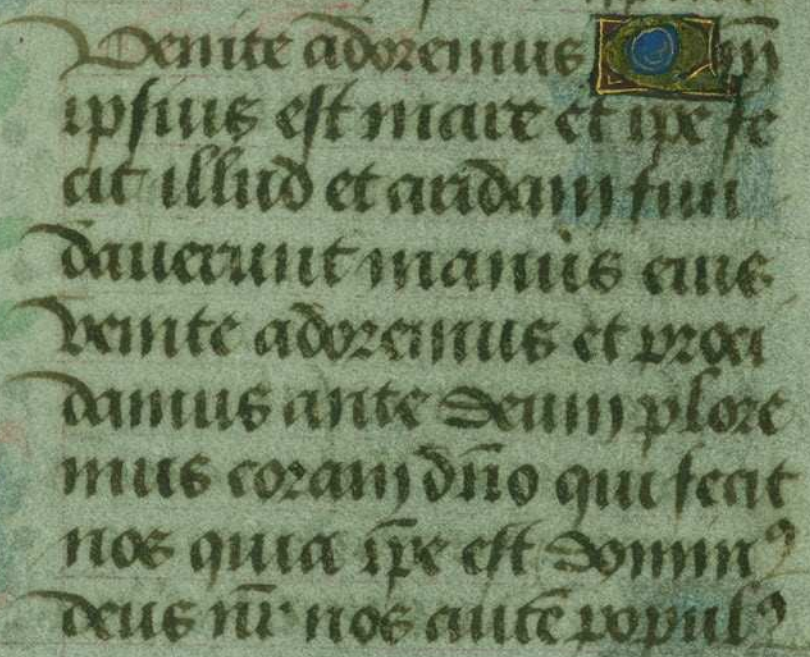 Venite adoremus Qm̄
ipsius est mare et ip̄e fe
cit illud et aridam fun
dauerunt manus eius
venite adoremus et proci
damus ante deum plore
mus coram dn̄o qui fecit
nos quia ip̄e est domin⁹
deus nr̄ nos autē popul⁹